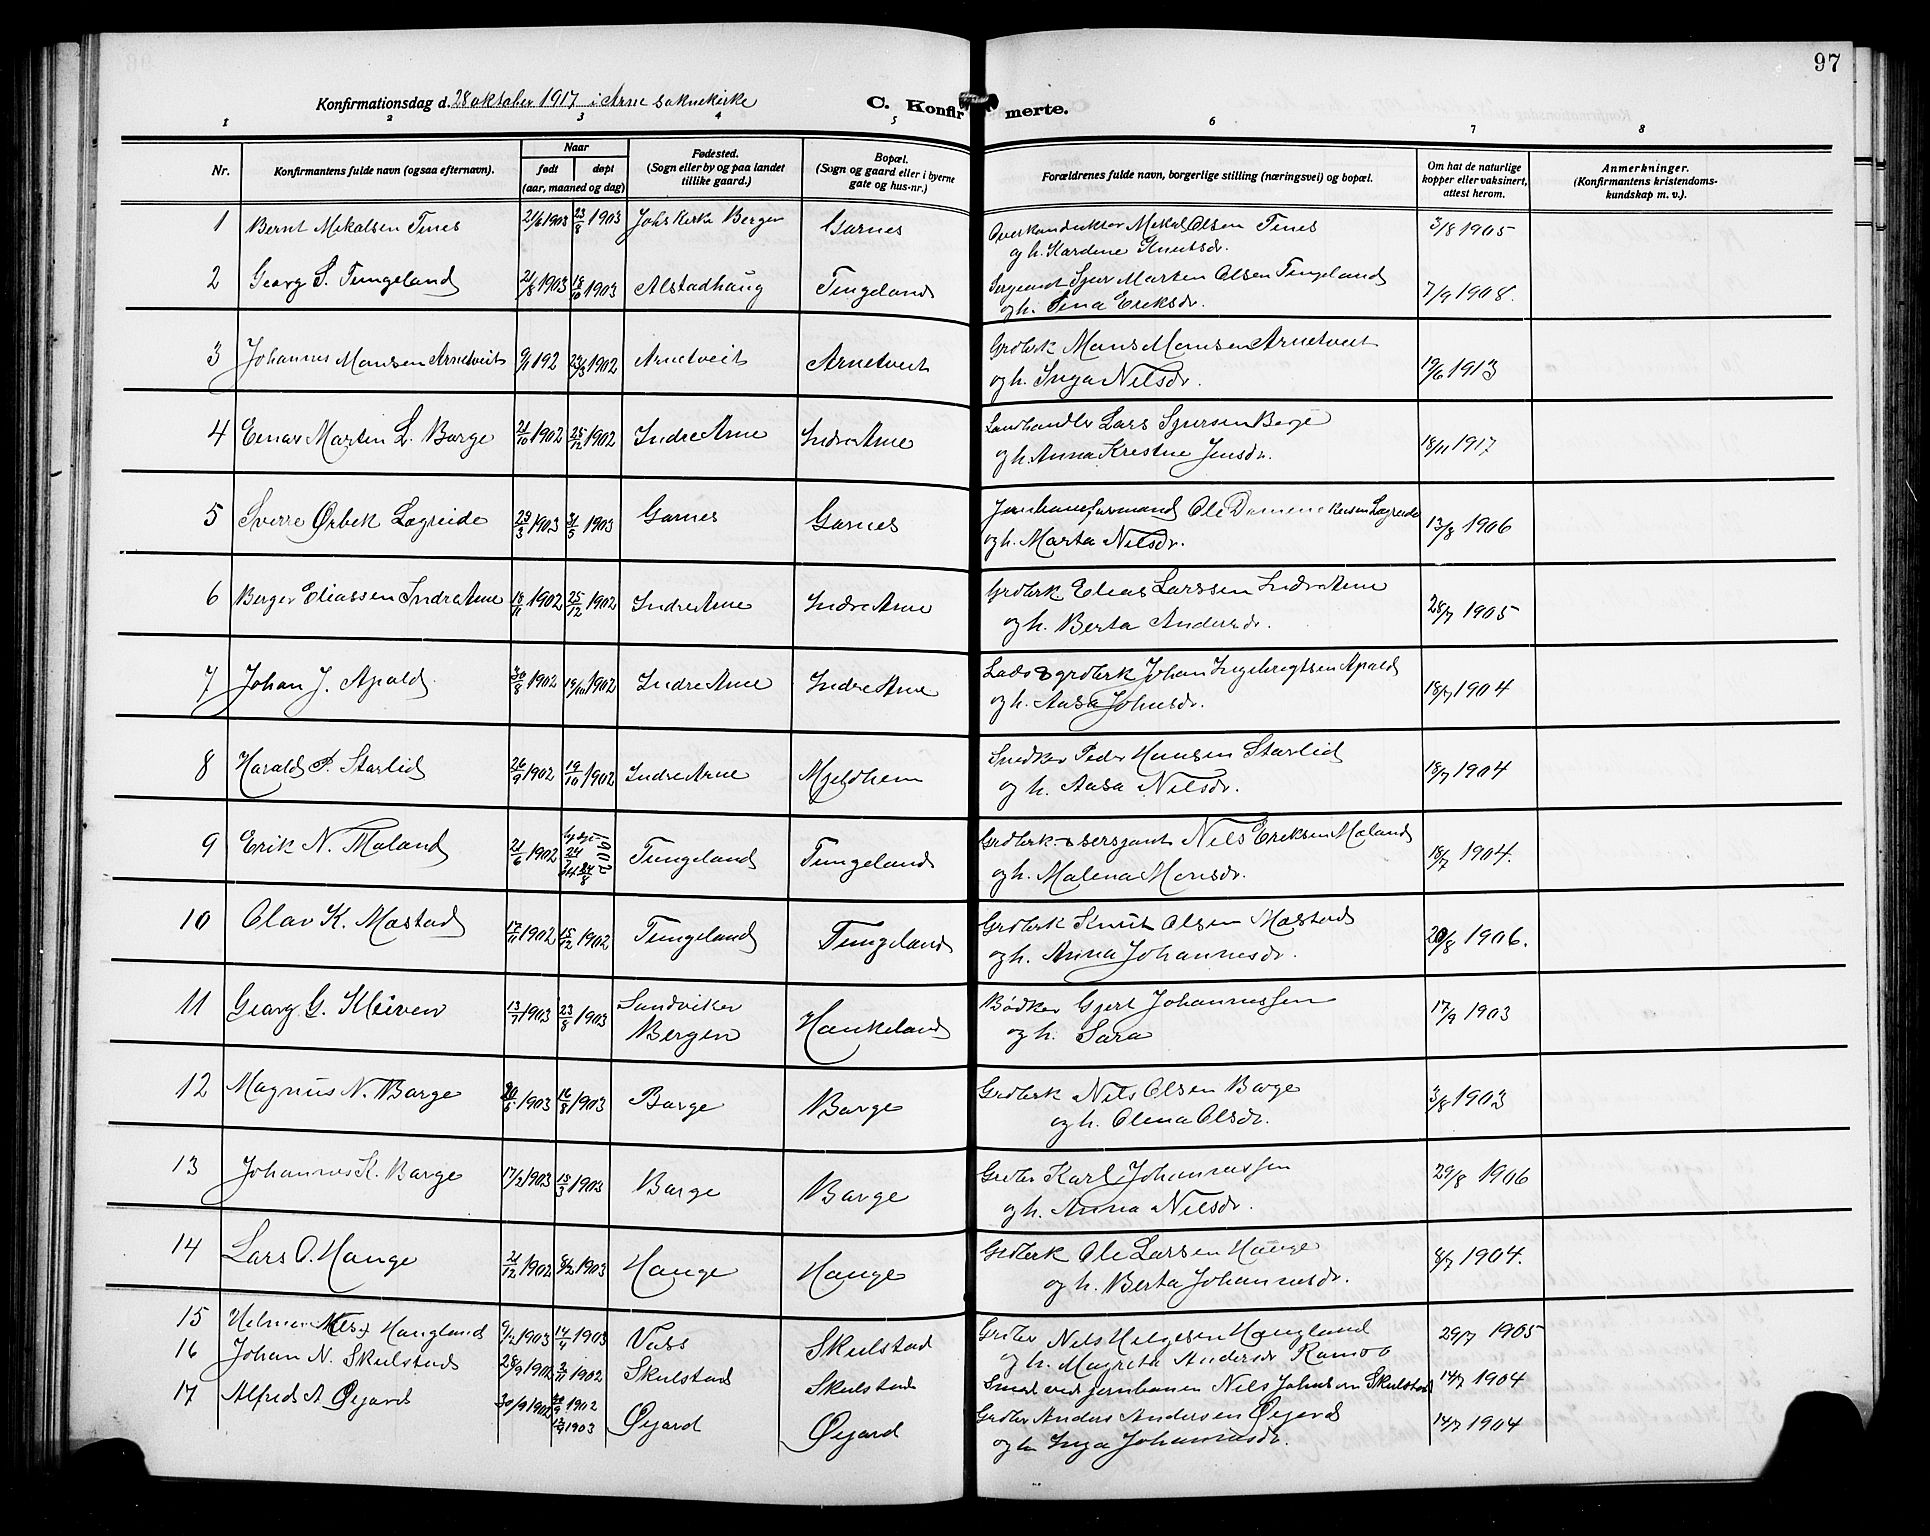 97
Konfirmationsdag d. 28 oktober 1917 i Arne soknekirke
C. Konfirmerte.
1 2 3 4 5 6 7 8
Nr. Konfirmantens fulde navn (ogsaa efternavn). Naar født døpt (aar, maaned og dag) Fødested. (Sogn eller by og paa landet tillike gaard.) Bopæl. (Sogn og gaard eller i byerne gate og hus-nr.) Forældrenes fulde navn, borgerlige stilling (næringsvei) og bopæl. Om hat de naturlige kopper eller vaksinert, attest herom. Anmerkninger. (Konfirmantens kristendomskundskap m. v.).
1 Bernt Mikalsen Tines 21/6 1903 23/8 1903 Johs kirke Bergen Garnes Overkonduktør Mikal Olsen Tines 3/8 1905
og h. Kardine Knutsdr.
2 Georg S. Tungeland 21/8 1903 18/10 1903 Alstadhaug Tungeland Sergeant Sjur Martin Olsen Tungeland 7/9 1908.
og h. Sina Eriksdr.
3 Johannes Monsen Arnetveit 192 1902 Arnetveit Arnetveit Grdbrk Mons Monsen Arnetveit 19/6 1913
og h. Inga Nilsdr.
4 Einar Martin L. Borge 21/10 1902 25/12 1902 Indre Arne Indre Arne Landhandler Lars Sjursen Borge 18/11 1917
og h. Anna Kristine Jensdr.
5 Sverre Ørbek Lægreide 29/3 1903 31/5 1903 Garnes Garnes Jernbaneformand Ole Lægreide 13/8 1906
og h. Marta Nilsdr.
6 Berger Eliassen Indre Arne 18/11 1902 25/12 1902 Indre Arne Indre Arne Grdbrk Elias Larssen Indre Arne 28/7 1905
og h. Berta Andersdr.
7 Johan J. Apald 30/8 1902 19/10 1902 Indre Arne Indre Arne Lods & grdbrk Johan Ingebrigtsen Apald 18/7 1904
og h. Aasa Johnsdr.
8 Harald P. Starlid 26/9 1902 19/10 1902 Indre Arne Mjeldhem Snedker Peder Hansen Starlid 18/7 1904
og h. Aasa Nilsdr.
9 Erik N. Mæland 21/6 1902 24/8 1902 Tungeland Tungeland Grdbrk & sersjant Nils Eriksen Mæland 18/7 1904.
og h. Malena Monsdr.
10 Olav K. Mæstad 17/11 1902 15/12 1902 Tungeland Tungeland Grdbrk Knut Olsen Mæstad 20/8 1906.
og h. Anna Johannesdr.
11 Georg G. Kleiven 13/7 1903 23/8 1903 Sandviken Bergen Haukeland Bødker Gjert Johannessen 17/9 1903
og h. Sara
12 Magnus N. Borge 1903 16/8 1903 Borge Borge Grdbrk Nils Olsen Borge 3/8 1903
og h. Olena Olsdr.
13 Johannes K. Borge 17/2 1903 15/3 1903 Borge Borge Grdbr Karl Johannessen 29/8 1906
og h. Anna Nilsdr.
14 Lars O. Hauge 21/12 1902 8/2 1903 Hauge Hauge Grdbrk Ole Larsen Hauge 8/7 1904.
og h. Berta Johannesdr.
15 Helmer Haugland 1903 14/4 1903 Voss Skulstad Grdbr Nils Helgesen Haugland 29/7 1905
og h. Magreta Andersdr
16 Johan N. Skulstad 28/9 1902 1902 Skulstad Skulstad Smed ved jernbanen Nils Johnson Skulstad 14/7 1904
17 Alfred A. Øyjord 30/9 1902 1902 1903 Øyjord Øyjord Grdbr Anders Andersen Øyjord 14/7 1904
og h. Inga Johannesdr.